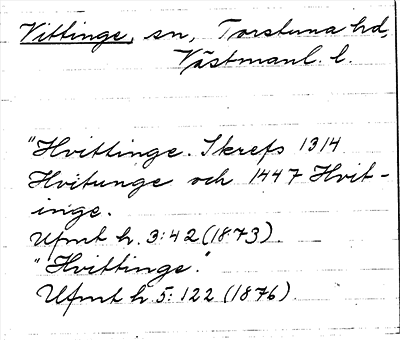 Vittinge, sn, Torstuna hd,
Västmanl. l.
"Hvittinge. Skrefs 1314
Hvitunge och 1447 Hvit-
inge.
Ufmt h. 3:42 (1873).
"Hvittinge."
Ufmt h 5:122 (1876).